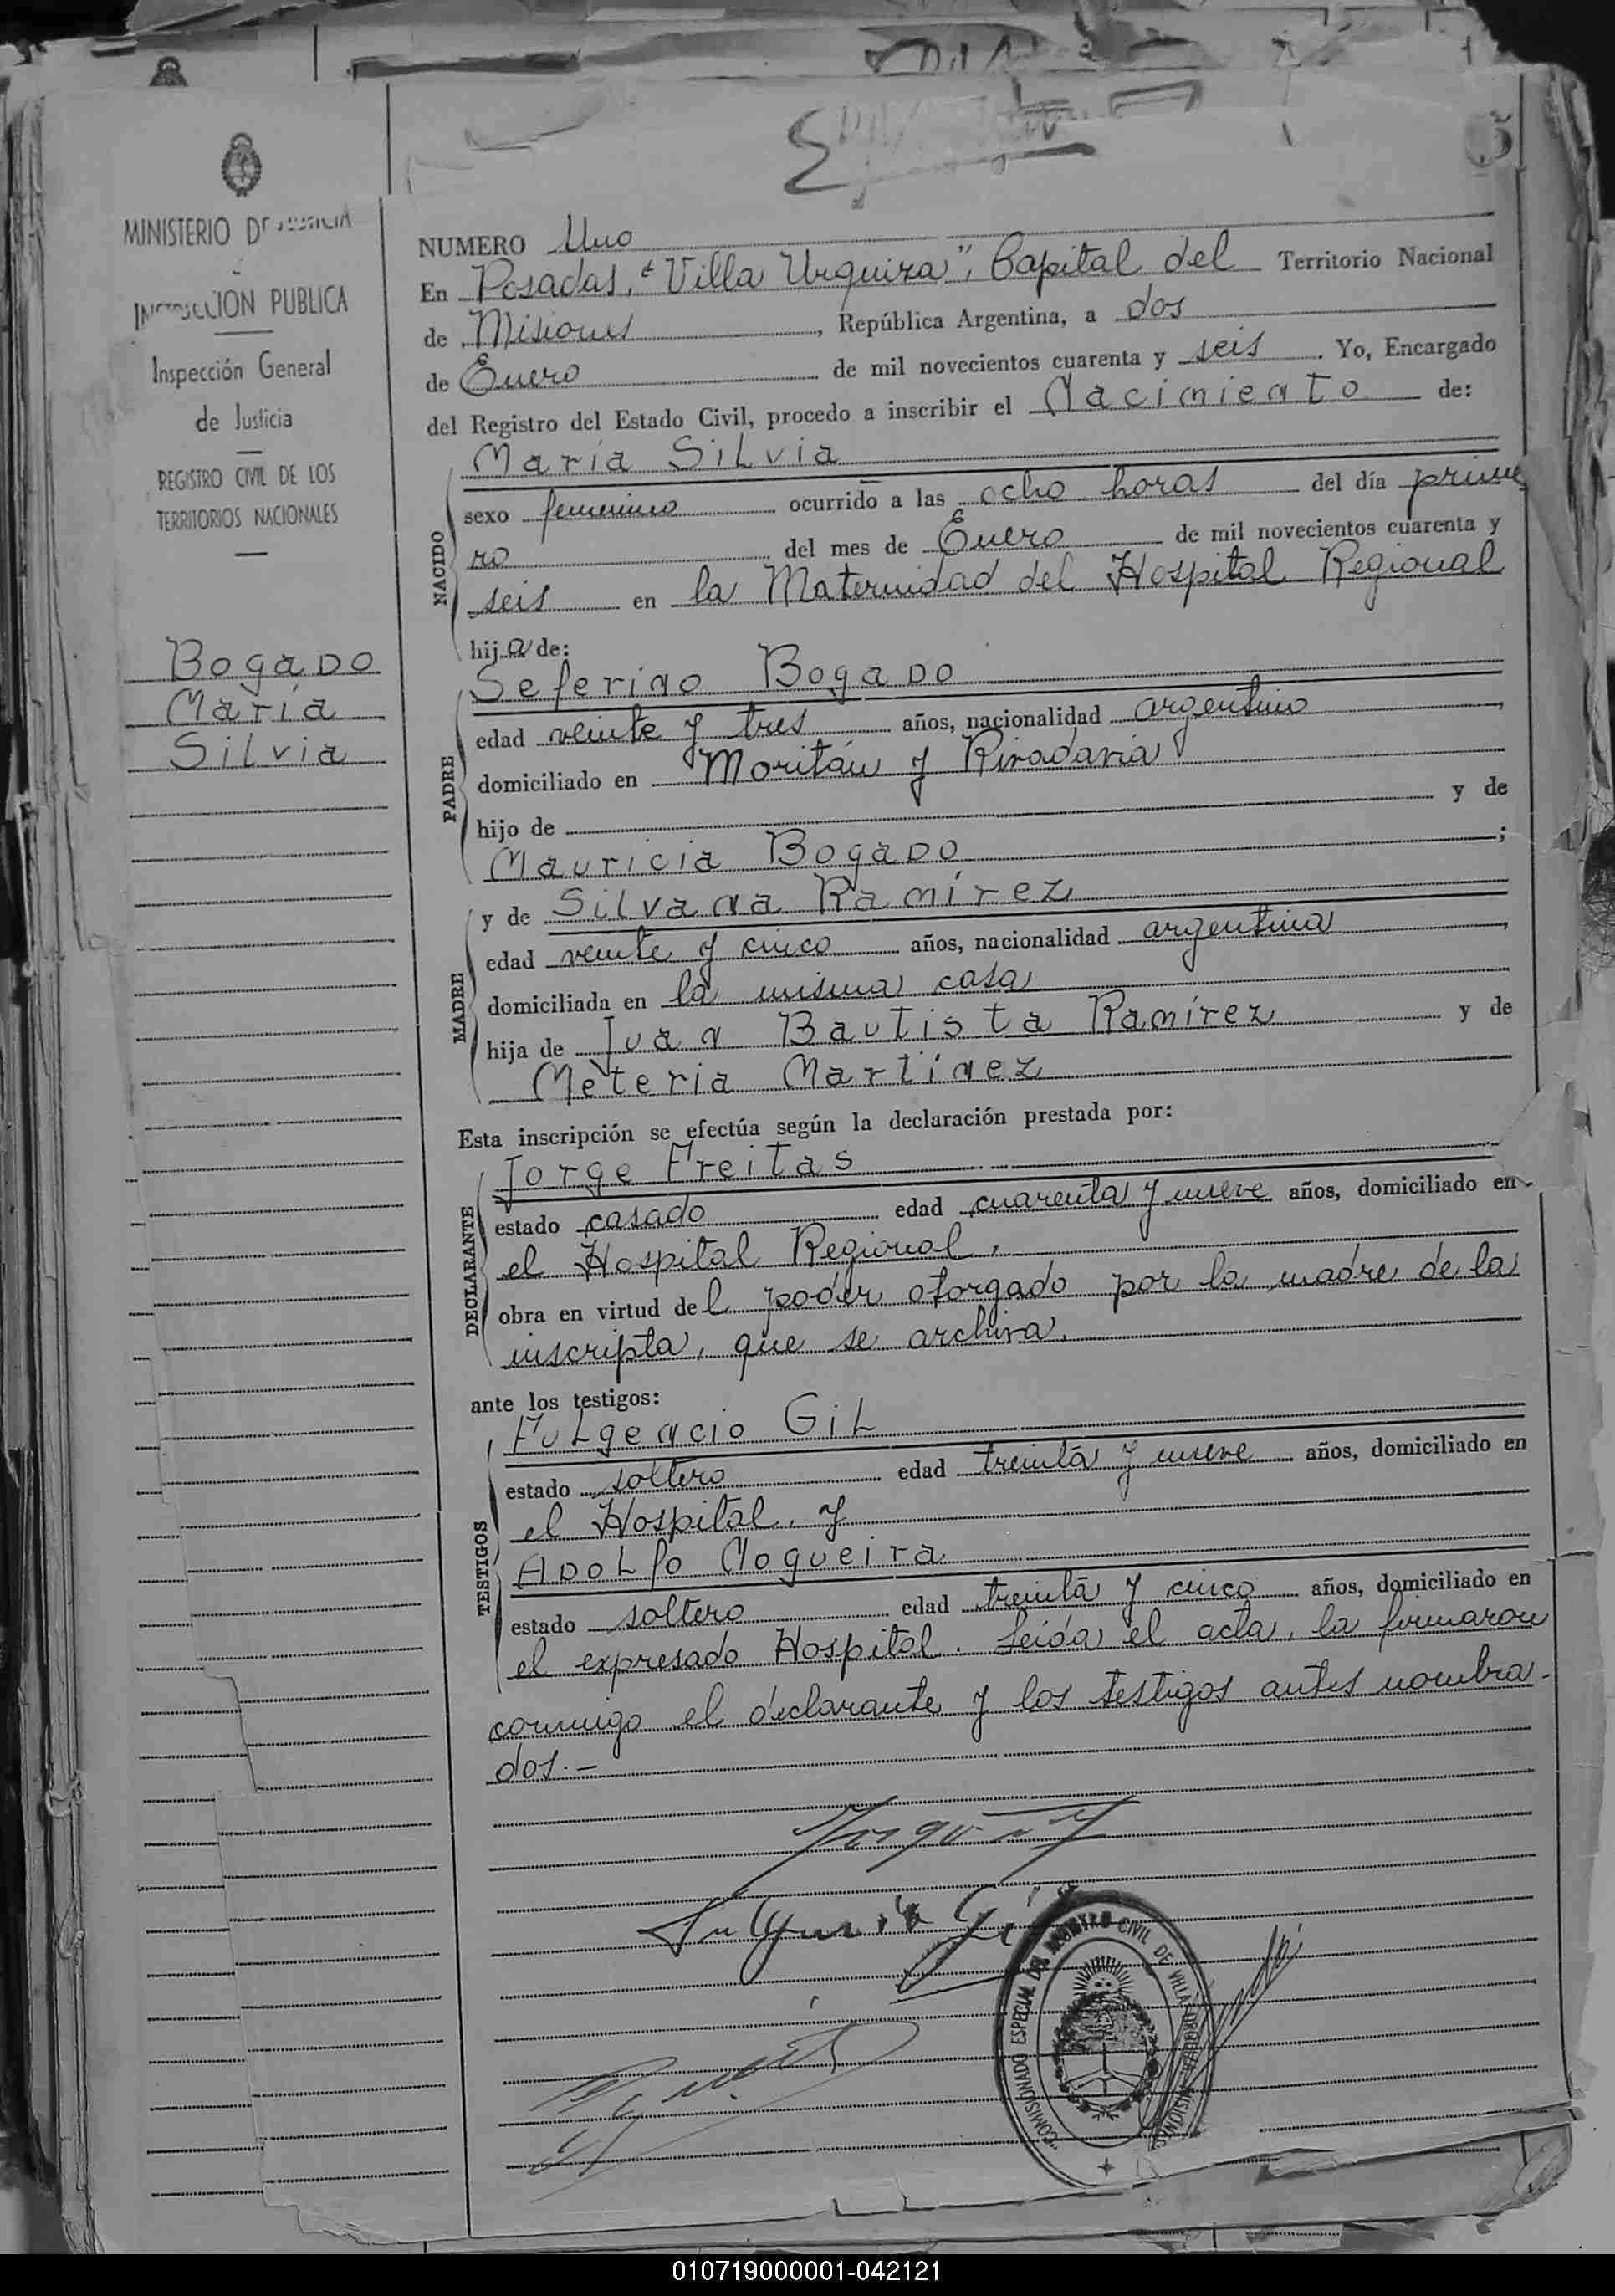 MINISTERIO DE JUSTICIA
INSTRUCCION PUBLICA
Inspección General
de Justicia
REGISTRO CIVIL DE LOS
TERRITORIOS NACIONALES
Bogado
María
Silvia
NUMERO Uno
En Posadas, "Villa Urquiza", Capital del Territorio Nacional
de Misiones, República Argentina, a dos
de Enero de mil novecientos cuarenta y seis. Yo, Encargado
del Registro del Estado Civil, procedo a inscribir el Nacimiento de:
María Silvia
NACIDO
sexo femenino ocurrido a las ocho horas del día prime
ro del mes de Enero de mil novecientos cuarenta y
seis en la Maternidad del Hospital Regional
hija de:
Seferino Bogado
PADRE
edad veinte y tres años, nacionalidad argentino,
domiciliado en Moritán y Rivadavia
hijo de y de
Mauricia Bogado;
y de Silvana Ramírez
MADRE
edad veinte y cinco años, nacionalidad argentina,
domiciliada en la misma casa
hija de Juan Bautista Ramírez y de
Meteria Martínez
Esta inscripción se efectúa según la declaración prestada por:
Jorge Freitas
DECLARANTE
estado casado edad cuarenta y nueve años, domiciliado en
el Hospital Regional,
obra en virtud del poder otorgado por la madre de la
inscripta, que se archiva.
ante los testigos:
Fulgencio Gil
TESTIGOS
estado soltero edad treinta y nueve años, domiciliado en
el Hospital, y
Adolfo Nogueira
estado soltero edad treinta y cinco años, domiciliado en
el expresado Hospital. Leída el acta, la firmaron
conmigo el declarante y los testigos antes nombra-
dos.-
Fulgencio Gil
COMISIONADO ESPECIAL DEL REGISTRO CIVIL DE VILLA URQUIZA MISIONES
010719000001-042121